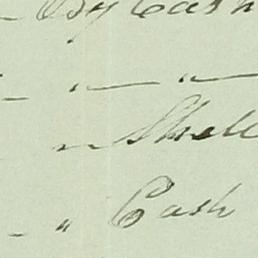 By Cash
" — " —
" Shell
" Cash